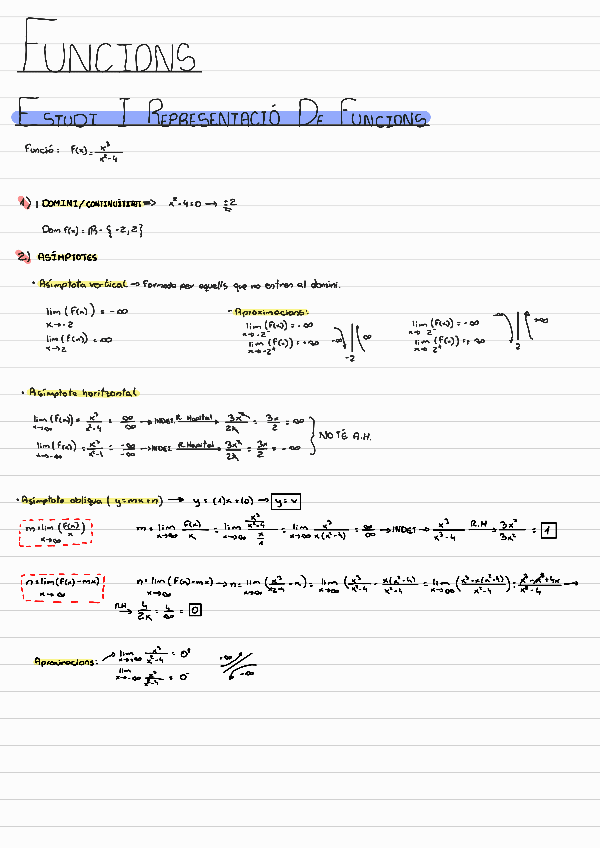 FUNCIONS
ESTUDI I REPRESENTACIÓ DE FUNCIONS
Funció: F(x)= x³/x²-4
1) DOMINI/CONTINUÏTAT => x²-4=0 → ±2
Dom F(x)= R - {-2,2}
2) ASÍMPTOTES
• Asímptota vertical → Formada per aquells que no entren al domini.
lim (F(x)) = -∞
x→-2
lim (F(x)) = ∞
x→2
- Aproximacions:
lim (F(x)) = -∞
x→-2⁻
lim (F(x)) = +∞
x→-2⁺
-∞ ∞
-2
lim (F(x)) = -∞
x→2⁻
lim (F(x)) = +∞
x→2⁺
+∞
2
• Asímptota horitzontal
lim (F(x)) = x³/x²-4 = ∞/∞ → INDET. R. Hopital → 3x²/2x = 3x/2 = ∞
x→∞
lim (F(x)) = x³/x²-4 = -∞/-∞ → INDET. R. Hopital → 3x²/2x = 3x/2 = -∞
x→-∞
NO TÉ A.H.
• Asímptota obliqua (y=mx+n) → y = (1)x+(0) → y=x
m= lim (F(x)/x) x→∞
m = lim x→∞ F(x)/x = lim x→∞ x³/x²-4 / x/1 = lim x→∞ x³/x(x²-4) = ∞/∞ → INDET → x³/x³-4 R.H → 3x²/3x² = 1
n= lim (F(x)-mx) x→∞
n= lim x→∞ (F(x)-mx) → n= lim x→∞ (x³/x²-4 - x) = lim x→∞ (x³/x²-4 - x(x²-4)/x²-4) = lim x→∞ (x³-x(x²-4)/x²-4) = x³-x³+4x/x²-4 →
R.H → 4/2x = 4/∞ = 0
Aproximacions: → lim x→+∞ x³/x²-4 = 0⁺
lim x→-∞ x³/x²-4 = 0⁻
+∞
-∞